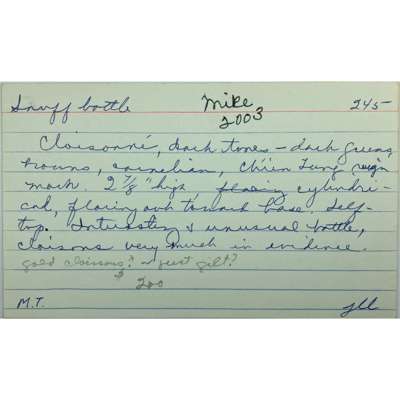 Snuff bottle Mike 245-
2003
Cloisonné, dark tones - dark greens,
browns, carnelian, Ch'ien Lung reign
mark. 2 7/8" high, flaring cylindri-
cal, flaring out toward base. Self-
top. Interesting & unusual bottle,
cloisons very much in evidence.
gold cloisons? or just gilt?
$ 200
M.T. JLL